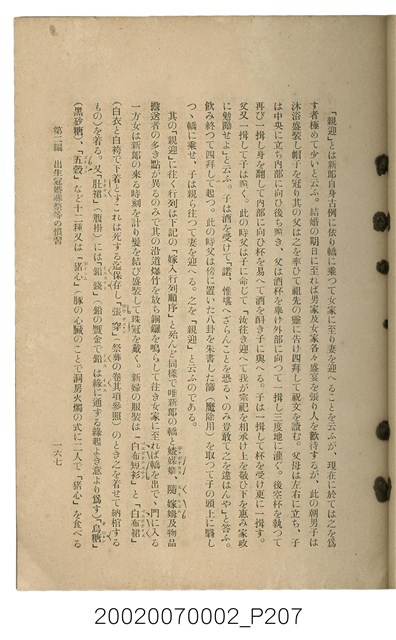 「親迎」とは新郎自身古例に依り轎に乘つて女家に至り妻を迎へることを云ふが、現在に於ては之を爲
す者極めて少いと云ふ。結婚の期日に至れば男家及女家各々盛宴を張り人を歡待するが、此の朝男子は
沐浴盛裝し帽子を冠り其の父は之を率ひて祖先の靈に告け四拜して祝文を讀む。父母は左右に立ち、子
は中央に立ち內部に向ひ後ち跪き、父は酒杯を擧け外部に向つて一揖し三度地に灌ぐ。後空杯を執つて
再び一揖し身を翻して內部に向ひ杯を易へて酒を酌き子に與へる。子は一揖して杯を受け更に一揖す。
父又一揖して子は跪く。此の時父は子に命じて「汝往き迎へて我が宗祀を相承け上を敬ひ下を惠み家政
に勉勵せよ」と云ふ。子は酒を受けて「諾、惟堪へざらんことを恐る、のみ豈敢て之を違はんや」と答ふ。
飮み終つて四拜して起つ。此の時父は傍に置いた八卦を朱書した篩(魔除用)を取つて子の頭上に翳し
つゝ轎に乘せ、子は親ら往つて妻を迎へる。之を「親迎」と云ふのである。
其の「親迎」に往く行列は下記の「嫁入行列順序」と殆んど同樣で唯新郎の轎と媒婆轎、隨嫁𡢃及物品
搬送者の多き點が異るのみで其の沿道爆竹を放ち銅鑼を鳴らして往き女家に至れば轎を出で、門に入る
一方女は新郎の來る時刻を計り髮を結び盛裝して珠冠を戴く。新婦の服裝は「白布短衫」と「白布裙」
(白衣と白袴で下着とすこれは死する迄保存し「張穿」祭葬の卷其項參照)のとき之を着せて納棺する
もの)を着る。又「肚裙」(腹掛)には「鉛錢」(鉛の贋金で鉛は緣に通ずる緣起よき意より爲す)「烏糖」
(黑砂糖)、「五穀」など十二種又は「猪心」(豚の心臟)のことで洞房火燭の式に二人で「猪心」を食べる
第二編 出生冠婚葬祭等の慣習
一六七
20020070002_P207